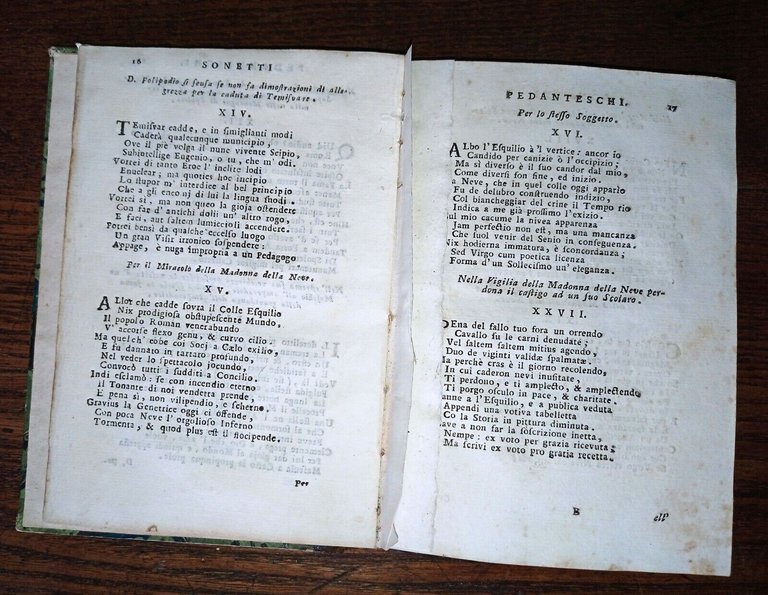 16 SONETTI
D. Polipodio si scusa se non fa dimostrazioni di alle-
grezza per la caduta di Temisvare.
XIV.
TEmisvar cadde, e in simiglianti modi
Caderà qualecunque municipio,
Ove il piè volga il nune vivente Scipio,
Subintellige Eugenio, o tu, che m' odi.
Vorrei di tanto Eroe l' inclite lodi
Enuclear; ma quoties hoc incipio
Lo stupor m' interdice al bel principio
Che a gli encomj di lui la lingua snodi.
Vorrei sì, ma non queo la gioja ostendere
Con far d' antichi dolii un' altro rogo,
E faci, aut saltem lumiccioli accendere.
Potrei bensì da qualche eccelso luogo
Un gran Visir ironico sospendere:
Appage, è nuga impropria a un Pedagogo
Per il Miracolo della Madonna della Neve.
XV.
ALlor che cadde sovra il Colle Esquilio
Nix prodigiosa obstupescente Mundo,
Il popolo Roman venerabundo
V' accorse flexo genu, & curvo cilio:
Ma quelch' ebbe coi Socj a Cælo exilio,
E fu dannato in tartaro profundo,
Nel veder lo spettacolo jocundo,
Convocò tutti i sudditi a Concilio.
Indi esclamò: se con incendio eterno
Il Tonante di noi vendetta prende,
E pena sì, non vilipendio, e scherno.
Gravius la Genetrice oggi ci offende,
Con poca Neve l' orgolioso Inferno
Tormenta, & quod plus est il flocipende.
Per
PEDANTESCHI. 17
Per lo stesso Soggetto.
XVI.
ALbo l' Esquilio à 'l vertice: ancor io
Candido per canizie ò l' occipizio;
Ma sì diverso è il suo candor dal mio,
Come diversi son fine, ed inizio.
a Neve, che in quel colle oggi apparìo
Fu de delubro construendo indizio,
Col biancheggiar del crine il Tempo rio
Indica a me già prossimo l' exizio.
Sul mio cacume la nivea apparenza
Jam perfectio non est, ma una mancanza
Che suol venir del Senio in conseguenza.
Nix hodierna immatura, è sconcordanza;
Sed Virgo cum poetica licenza
Forma d' un Sollecismo un' eleganza.
Nella Vigilia della Madonna della Neve per-
dona il castigo ad un suo Scolaro.
XXVII.
PEna del fallo tuo fora un orrendo
Cavallo su le carni denudate;
Vel saltem saltem mitius agendo,
Duo de viginti validæ spalmatæ.
Ma perchè cras è il giorno recolendo,
In cui caderon nevi inusitate,
Ti perdono, e ti amplecto, & amplectendo
Ti porgo osculo in pace, & charitate.
anne a l' Esquilio, e a publica veduta
Appendi una votiva tabelletta
Co la Storia in pittura diminuta.
ave a non far la soscrizione inetta,
Nempe: ex voto per grazia ricevuta;
Ma scrivi ex voto pro gratia recetta.
B ell'